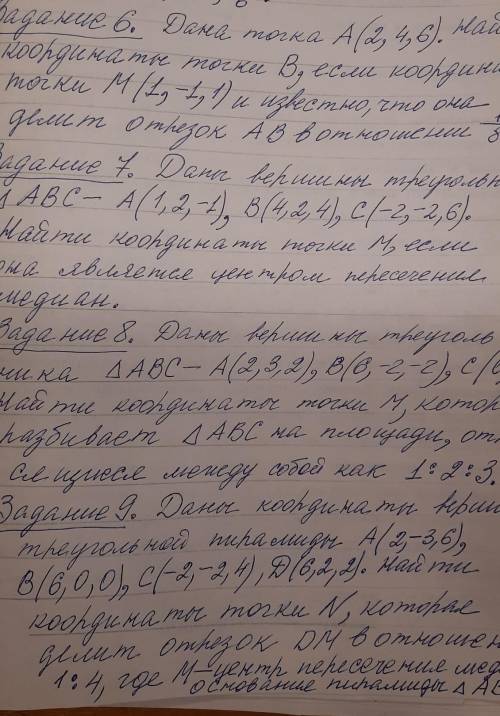 Задание 6. Дана точка A(2,4,6). Най
координаты точки B, если координа
точки M(1,-1,1) и известно, что она
делит отрезок AB в отношении
Задание 7. Даны вершины треугольн
△ABC — A(1,2,-1), B(4,2,4), C(-2,-2,6).
Найти координаты точки M, если
она является центром пересечения
медиан.
Задание 8. Даны вершины треуголь
ника △ABC — A(2,3,2), B(6,-2,-2), C(
Найти координаты точки M, котор
разбивает △ABC на площади, отн
сящиеся между собой как 1:2:3.
Задание 9. Даны координаты верши
треугольной пирамиды A(2,-3,6),
B(6,0,0), C(-2,-2,4), D(6,2,2). Найти
координаты точки N, которая
делит отрезок DM в отношен
1:4, где M-центр пересечения мед
основание пирамиды △AB